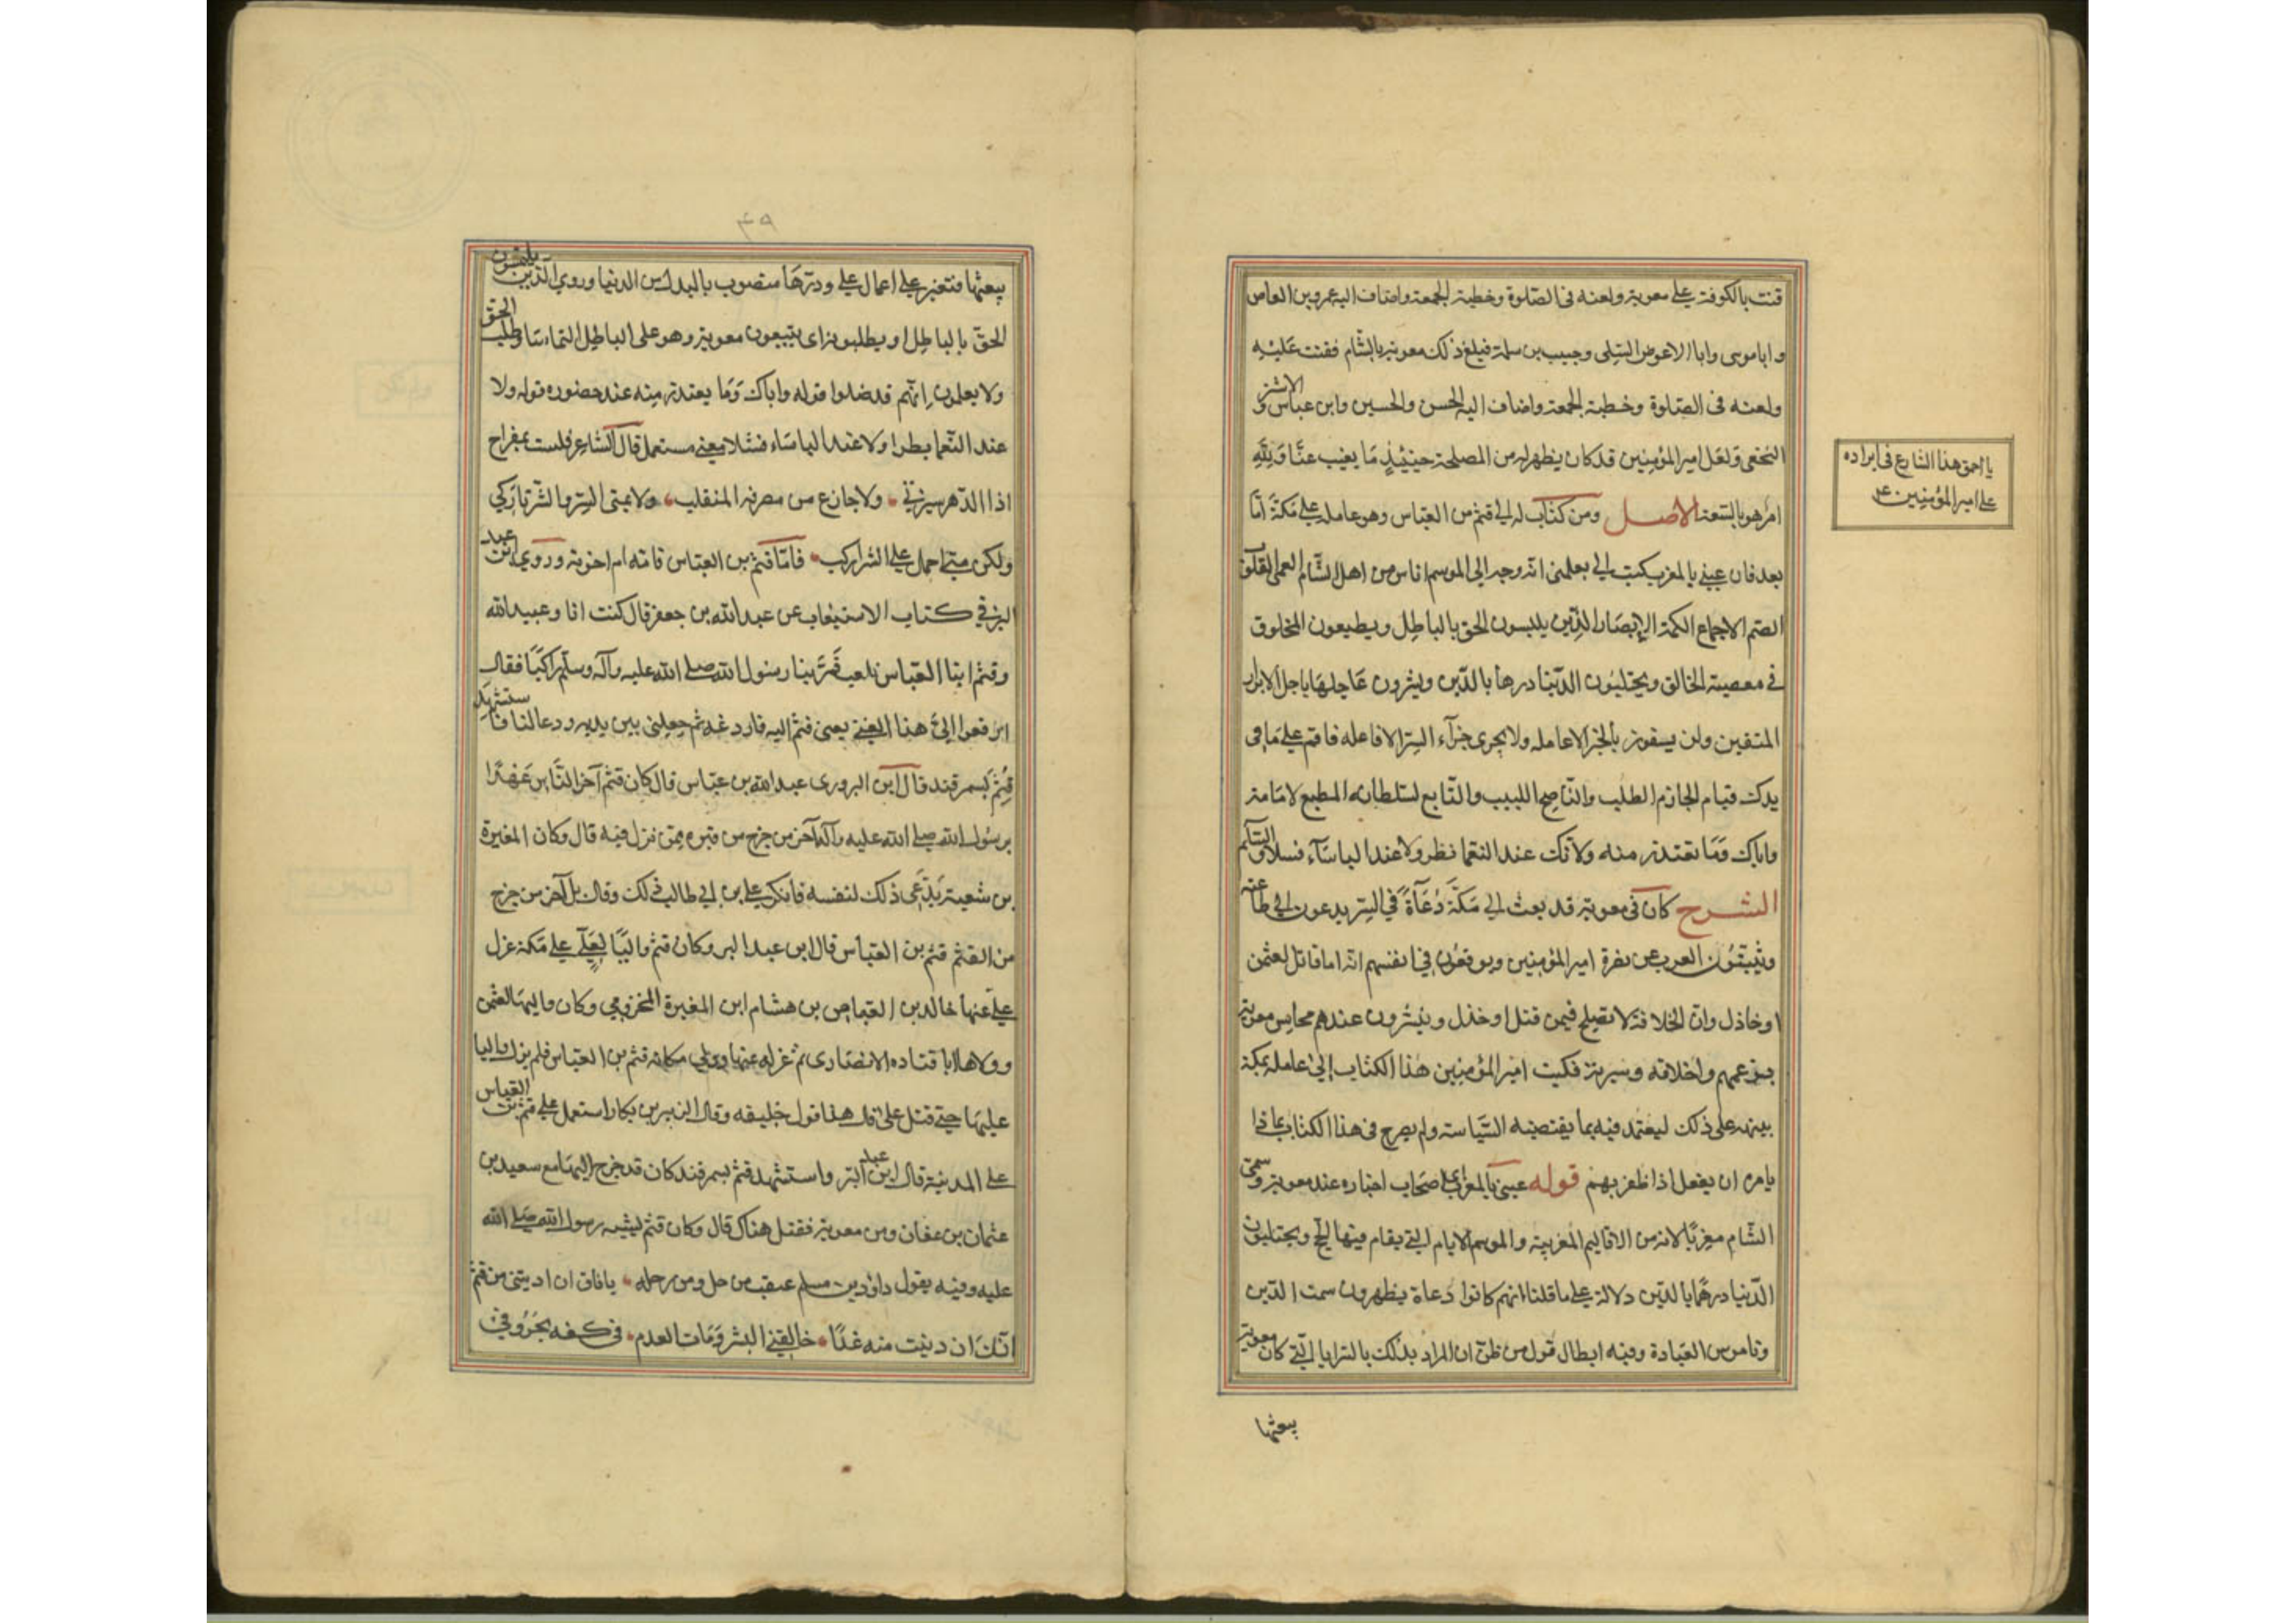 قنت بالكوفة على معوية ولعنه فى الصلوة وخطبة الجمعة واضاف اليه عمرو بن العاص
و اباموسى وابا الاعوض السلى وحبيب بن سلمة فبلغ ذلك معوية بالشام فقنت عليه
ولعنه فى الصلوة وخطبة الجمعة واضاف اليه الحسن والحسين وابن عباس و الاشتر
النخعى ولعل امير المؤمنين قد كان يظهر له من المصلحة حينيذ ما يغيب عنا ولله
امر هو بالغه الاصل ومن كتاب له الى قثم بن العباس وهو عامله على مكة اما
بعد فان عينى بالمغرب كتب الى يعلمنى انه وجه الى الموسم اناس من اهل الشام العمى القلوب
الصم الاسماع الكمة الابصار الذين يلبسون الحق بالباطل ويطيعون المخلوق
فى معصية الخالق ويحتلبون الدنيا درها بالدين ويشرون عاجلها باجل الابرار
المتقين ولن يفوز بالخير الا عامله ولا يجزى جزآء الشر الا فاعله فاقم على ما فى
يدك قيام الحازم الطلب والناصح اللبيب والتابع لسلطانه المطيع لامامه
واياك وما تعتذر منه ولا تك عند النعما بطرا ولا عند الباسآء فشلا والسلم
الشرح كان معوية قد بعث الى مكة دعاة فى السر يدعون الى طاعته
ويثبطون العرب عن نصرة امير المؤمنين ويوقعون فى انفسهم انه اما قاتل لعثمن
او خاذل وان الخلافة لا تصلح فيمن قتل او خذل وينشرون عندهم محاسن معوية
بزعمهم واخلاقه وسيرته فكتب امير المؤمنين هذا الكتاب الى عامله بمكة
ينبهه على ذلك ليعتمد فيه بما يقتضيه السياسة ولم يصرح فى هذا الكتاب بماذا
يامره ان يفعل اذا ظفر بهم قوله عينى بالمغرب اى اصحاب اخباره عند معوية وسمى
الشام مغربا لانه من الاقاليم المغربية والموسم الايام التى يقام فيها الحج ويحتلبون
الدنيا درها بالدين دلالة على ما قلنا انهم كانوا دعاة يظهرون سمت الدين
وناموس العبادة وفيه ابطال قول من ظن ان المراد بذلك بالسرايا التى كان معوية
يبعثها
يا احمق هذا الشارع فى ايراده
على امير المؤمنين
٤٩
يبعثها فتغير على اعمال على ودرها منصوب بالبدل من الدنيا وروى الذين يلتمسون
الحق بالباطل اى يطلبونه اى يتبعون معوية وهو على الباطل التماسا وطلب الحق
ولا يعلمون انهم قد ضلوا قوله واياك وما يعتذر منه عند حضوره قوله ولا
عند النعما بطرا ولا عند الباساء فشلا معنى مستعمل قال الشاعر فلست بمفراح
اذا الدهر سرنى ولا جازع من صرفه المنقلب ولا يتمنى الشر والشر تاركى
ولكن متى احمل على الشر اركب فاما قثم بن العباس فامه ام اخوته وروى ابن عبد
البر فى كتاب الاستيعاب عن عبد الله بن جعفر قال كنت انا وعبيد الله
وقثم ابنا العباس نلعب فمر بنا رسول الله صلى الله عليه وآله وسلم راكبا فقال
ارفعوا الى هذا الفتى يعنى قثم اليه فاردفه ثم جعلنى بين يديه ودعا لنا فاستشهد
قثم بسمرقند قال ابن البر وروى عبد الله بن عباس قال كان قثم آخر الناس عهدا
برسول الله صلى الله عليه وآله آخر من خرج من قبره ممن نزل فيه قال وكان المغيرة
بن شعبة يدعى ذلك لنفسه فانكر على بن ابى طالب ذلك وقال بل آخر من خرج
من القبر قثم بن العباس قال ابن عبد البر وكان قثم واليا لعلى على مكة عزل
على عنها خالد بن العباص بن هشام ابن المغيرة المخزومى وكان واليها لعثمن
وولاها ابا قتاده الانصارى ثم عزله عنها وولى مكانه قثم بن العباس فلم يزل واليا
عليها حتى قتل على قال هذا قول خليفه وقال الزبير بن بكار استعمل على قثم بن العباس
على المدينة قال ابن عبد البر واستشهد قثم بسمرقند كان قد خرج اليها مع سعيد بن
عثمان بن عفان زمن معوية فقتل هناك قال وكان قثم ليشبه رسول الله صلى الله
عليه وفيه يقول داود بن مسلم عتقت من حل ومن رحله ياناق ان ادنيتنى من قثم
انك ان دنيت منه غدا حالفنى البشر ومات العدم فى كفه بحر وفى